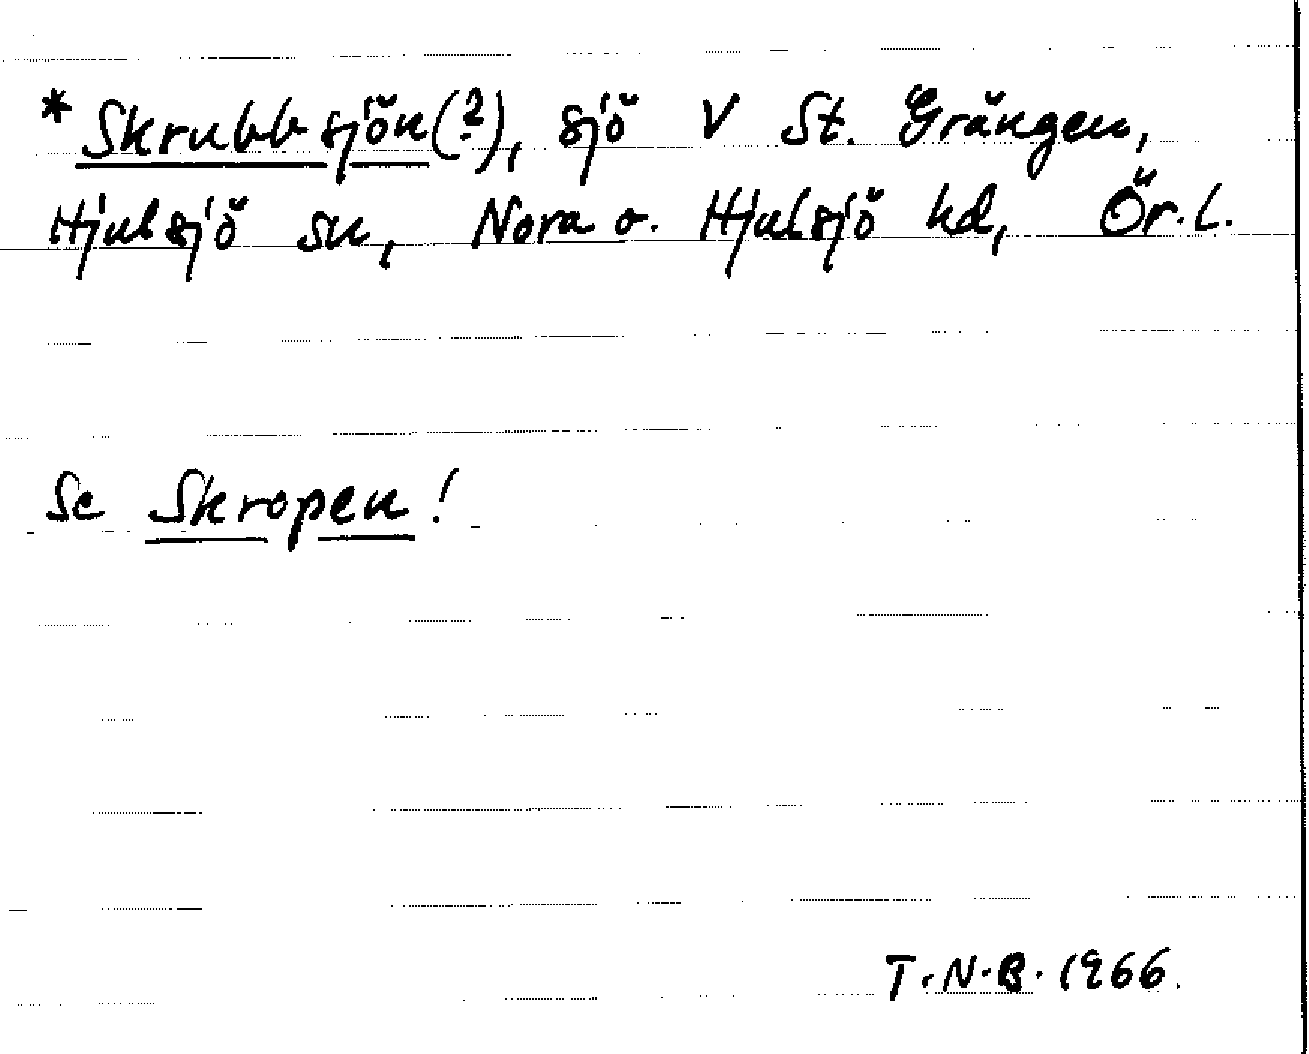 * Skrubbsjön(?), sjö V St. Grängen,
Hjulsjö sn, Nora o. Hjulsjö hd, Ör. l.
Se Skropen!
T.N.B. 1966.